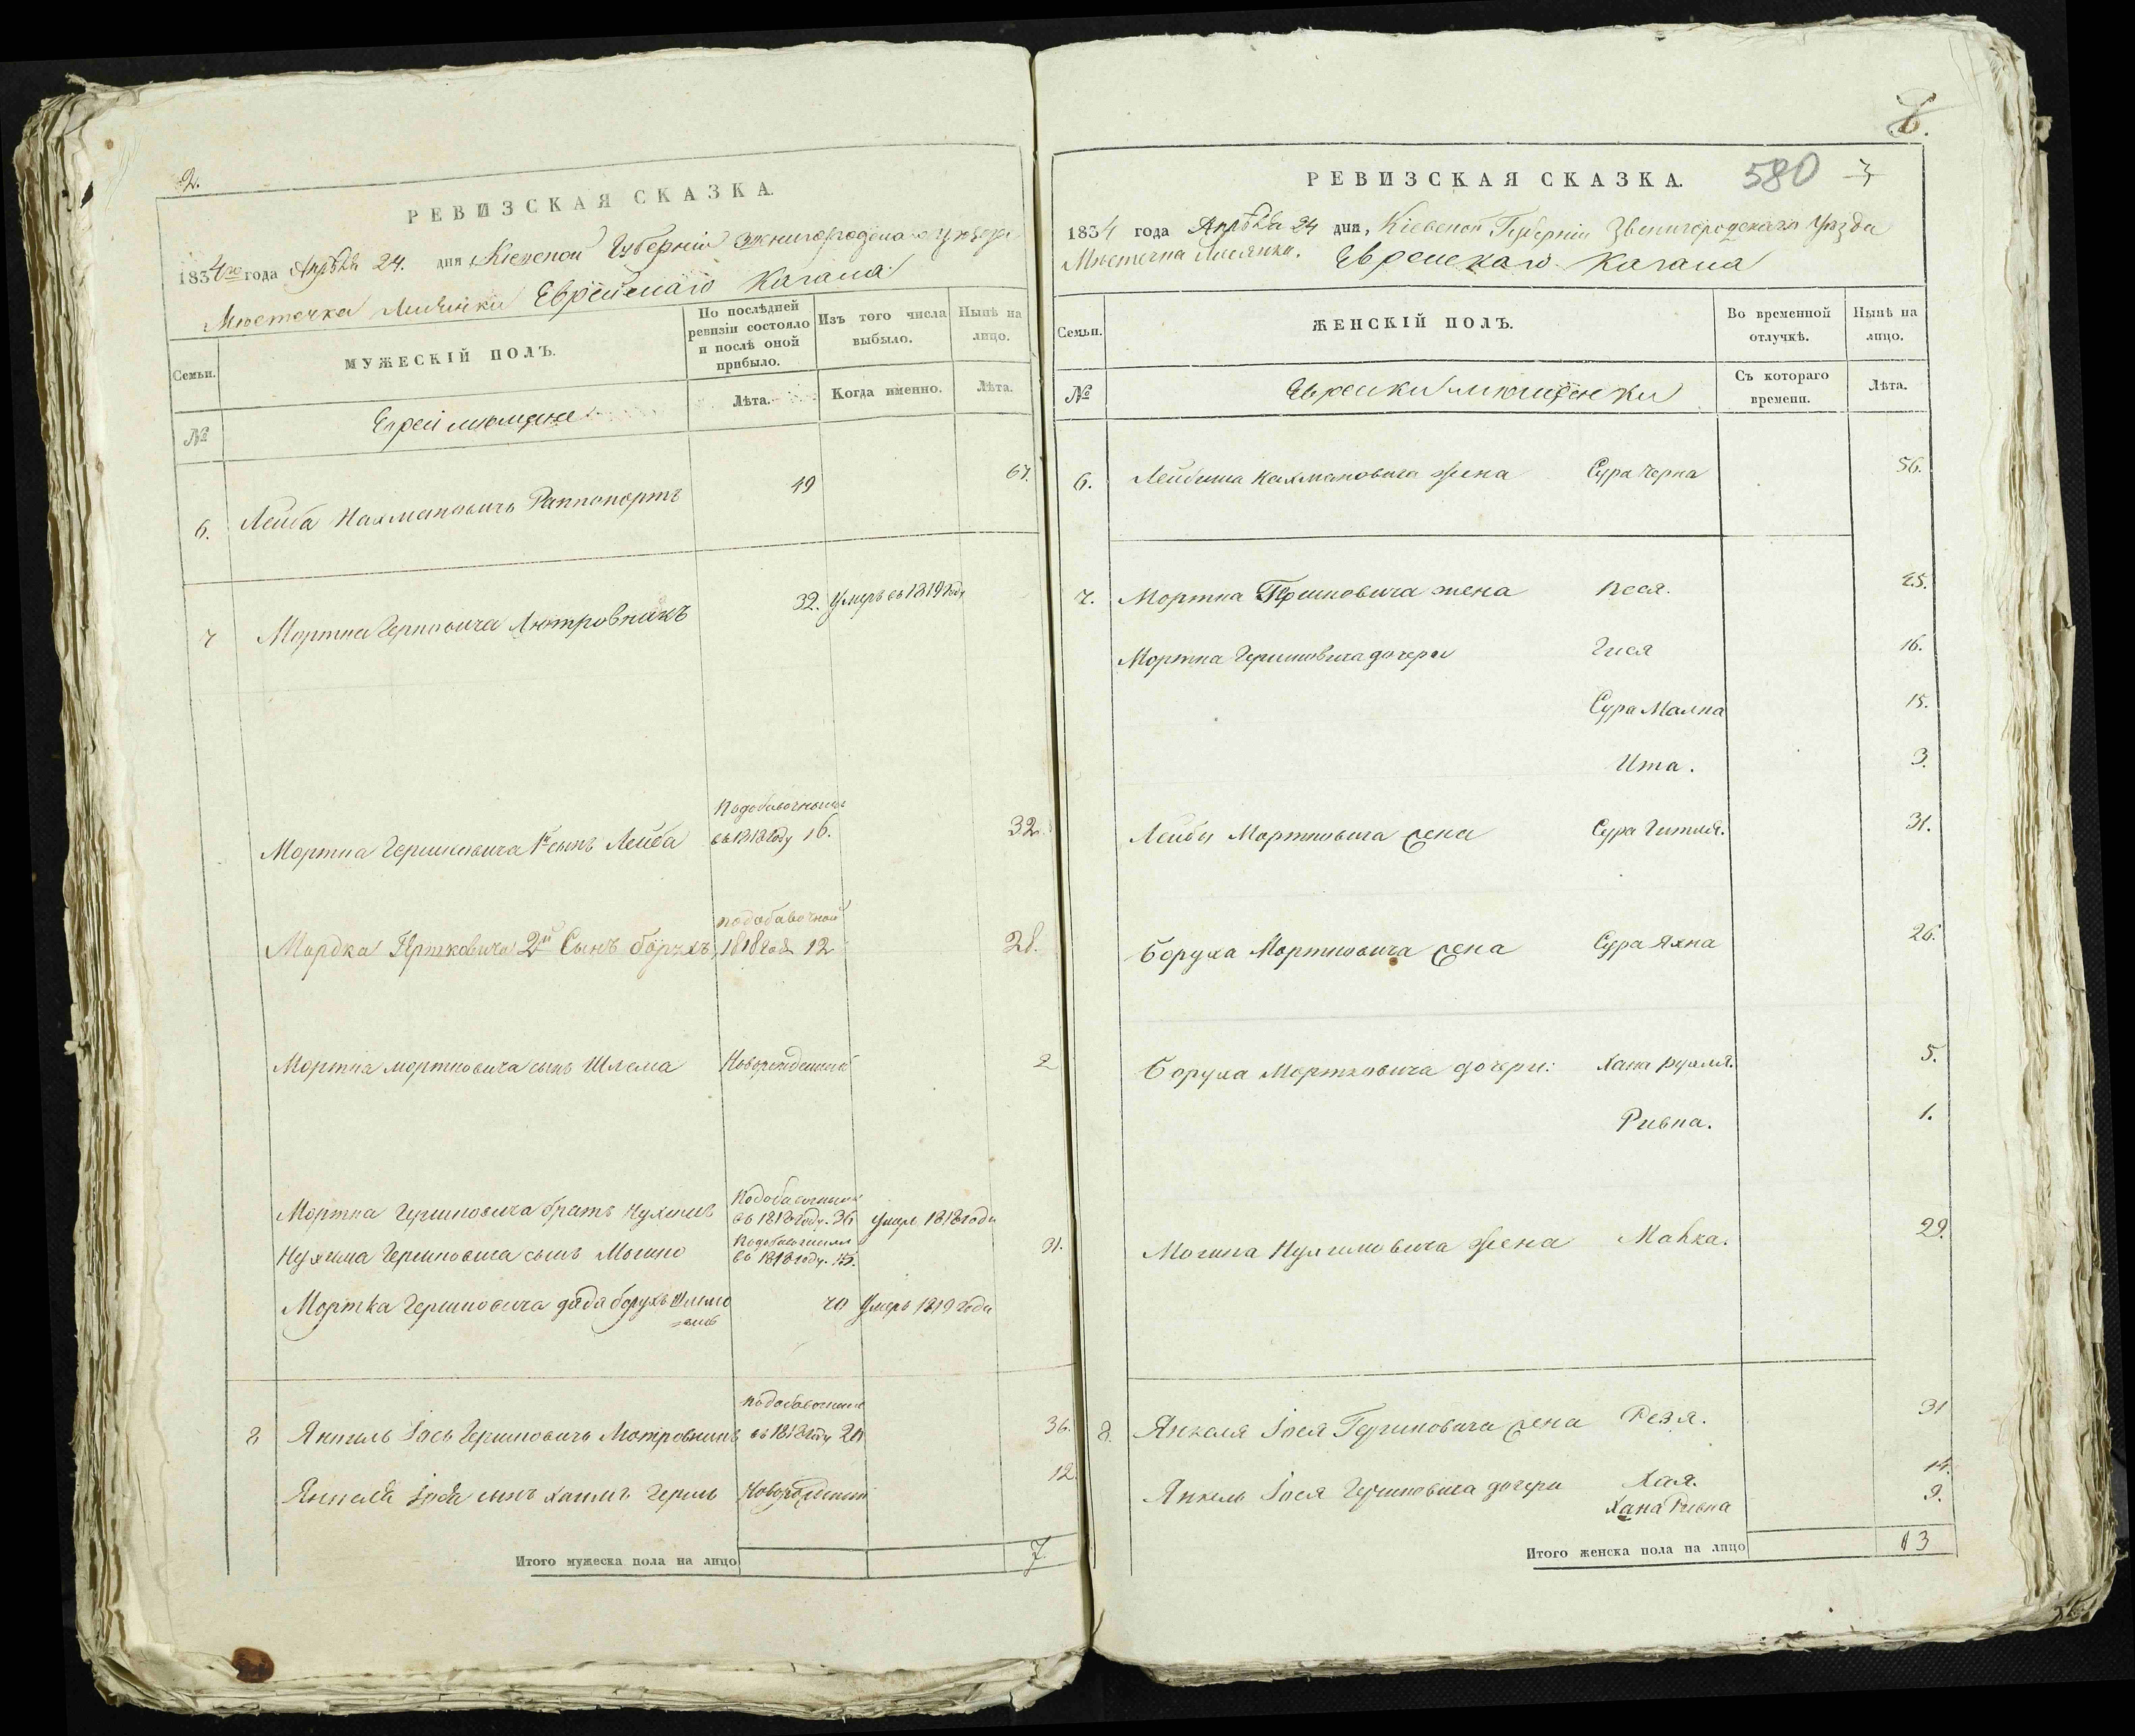 2.
РЕВИЗСКАЯ СКАЗКА.
1834го года Апрѣля 24. дня Кіевской Губерніи Звенигородскаго уѣзда
Мѣстечка Лисянки Еврейскаго Кагала
Семьи.
МУЖЕСКІЙ ПОЛЪ.
По послѣдней ревизіи состояло и послѣ оной прибыло.
Изъ того числа выбыло.
Нынѣ на лицо.
№
Евреи мѣщане
Лѣта.
Когда именно.
Лѣта.
6. Лейба Нахмановичъ Раппопортъ 49 67.
7 Мортка Гершковича 32. Умеръ въ 1819 году
Мортка Гершковича 1й сынъ Лейба подобавочныи въ 1818 году 16. 32.
Мордка Гершковича 2й Сынъ борухъ подобавочной 1818 года 12 28.
Мортка мортковича сынъ Шлема Новорожденный 2
Мортка Гершковича братъ Нухимъ Подобавочныи въ 1818 году. 36 умеръ 1818 года
Нухима Гершковича сынъ Мошко Подобавочныи въ 1818 году. 15. 31.
Мортка Гершковича дядя борухъ 70 Умеръ 1819 года
8 Янкель Іось Гершковичъ подобавочныи въ 1818 году 20 36.
Янкеля Іося сынъ Хаимъ Гершь Новорожденный 12.
Итого мужеска пола на лицо 7
8.
РЕВИЗСКАЯ СКАЗКА. 580
1834 года Апрѣля 24 дня, Кіевской Губерніи Звенигородскаго Уѣзда
Мѣстечка Лисянки. Еврейскаго Кагала
Семьи.
ЖЕНСКІЙ ПОЛЪ.
Во временной отлучкѣ.
Нынѣ на лицо.
№
Еврейки мѣщанки
Съ котораго времени.
Лѣта.
6. Лейбиша Нахмановича жена Сура Черна 56.
7. Мортка Гершковича жена Песя. 45.
Мортка Гершковича дочери Гися 16.
Сура Малка 15.
Ита. 3.
Лейбы Мортковича жена Сура Гитля. 31.
Боруха Мортковича жена Сура Яхна 26.
Боруха Мортковича дочери: Хана Рухля. 5.
Ривка. 1.
Мошка Нухимовича жена Малка. 29.
8. Янкеля Іося Гершковича жена Резя. 31
Янкель Іося Гершковича дочери Хая. 14.
Хана Ривка 9.
Итого женска пола на лицо 13